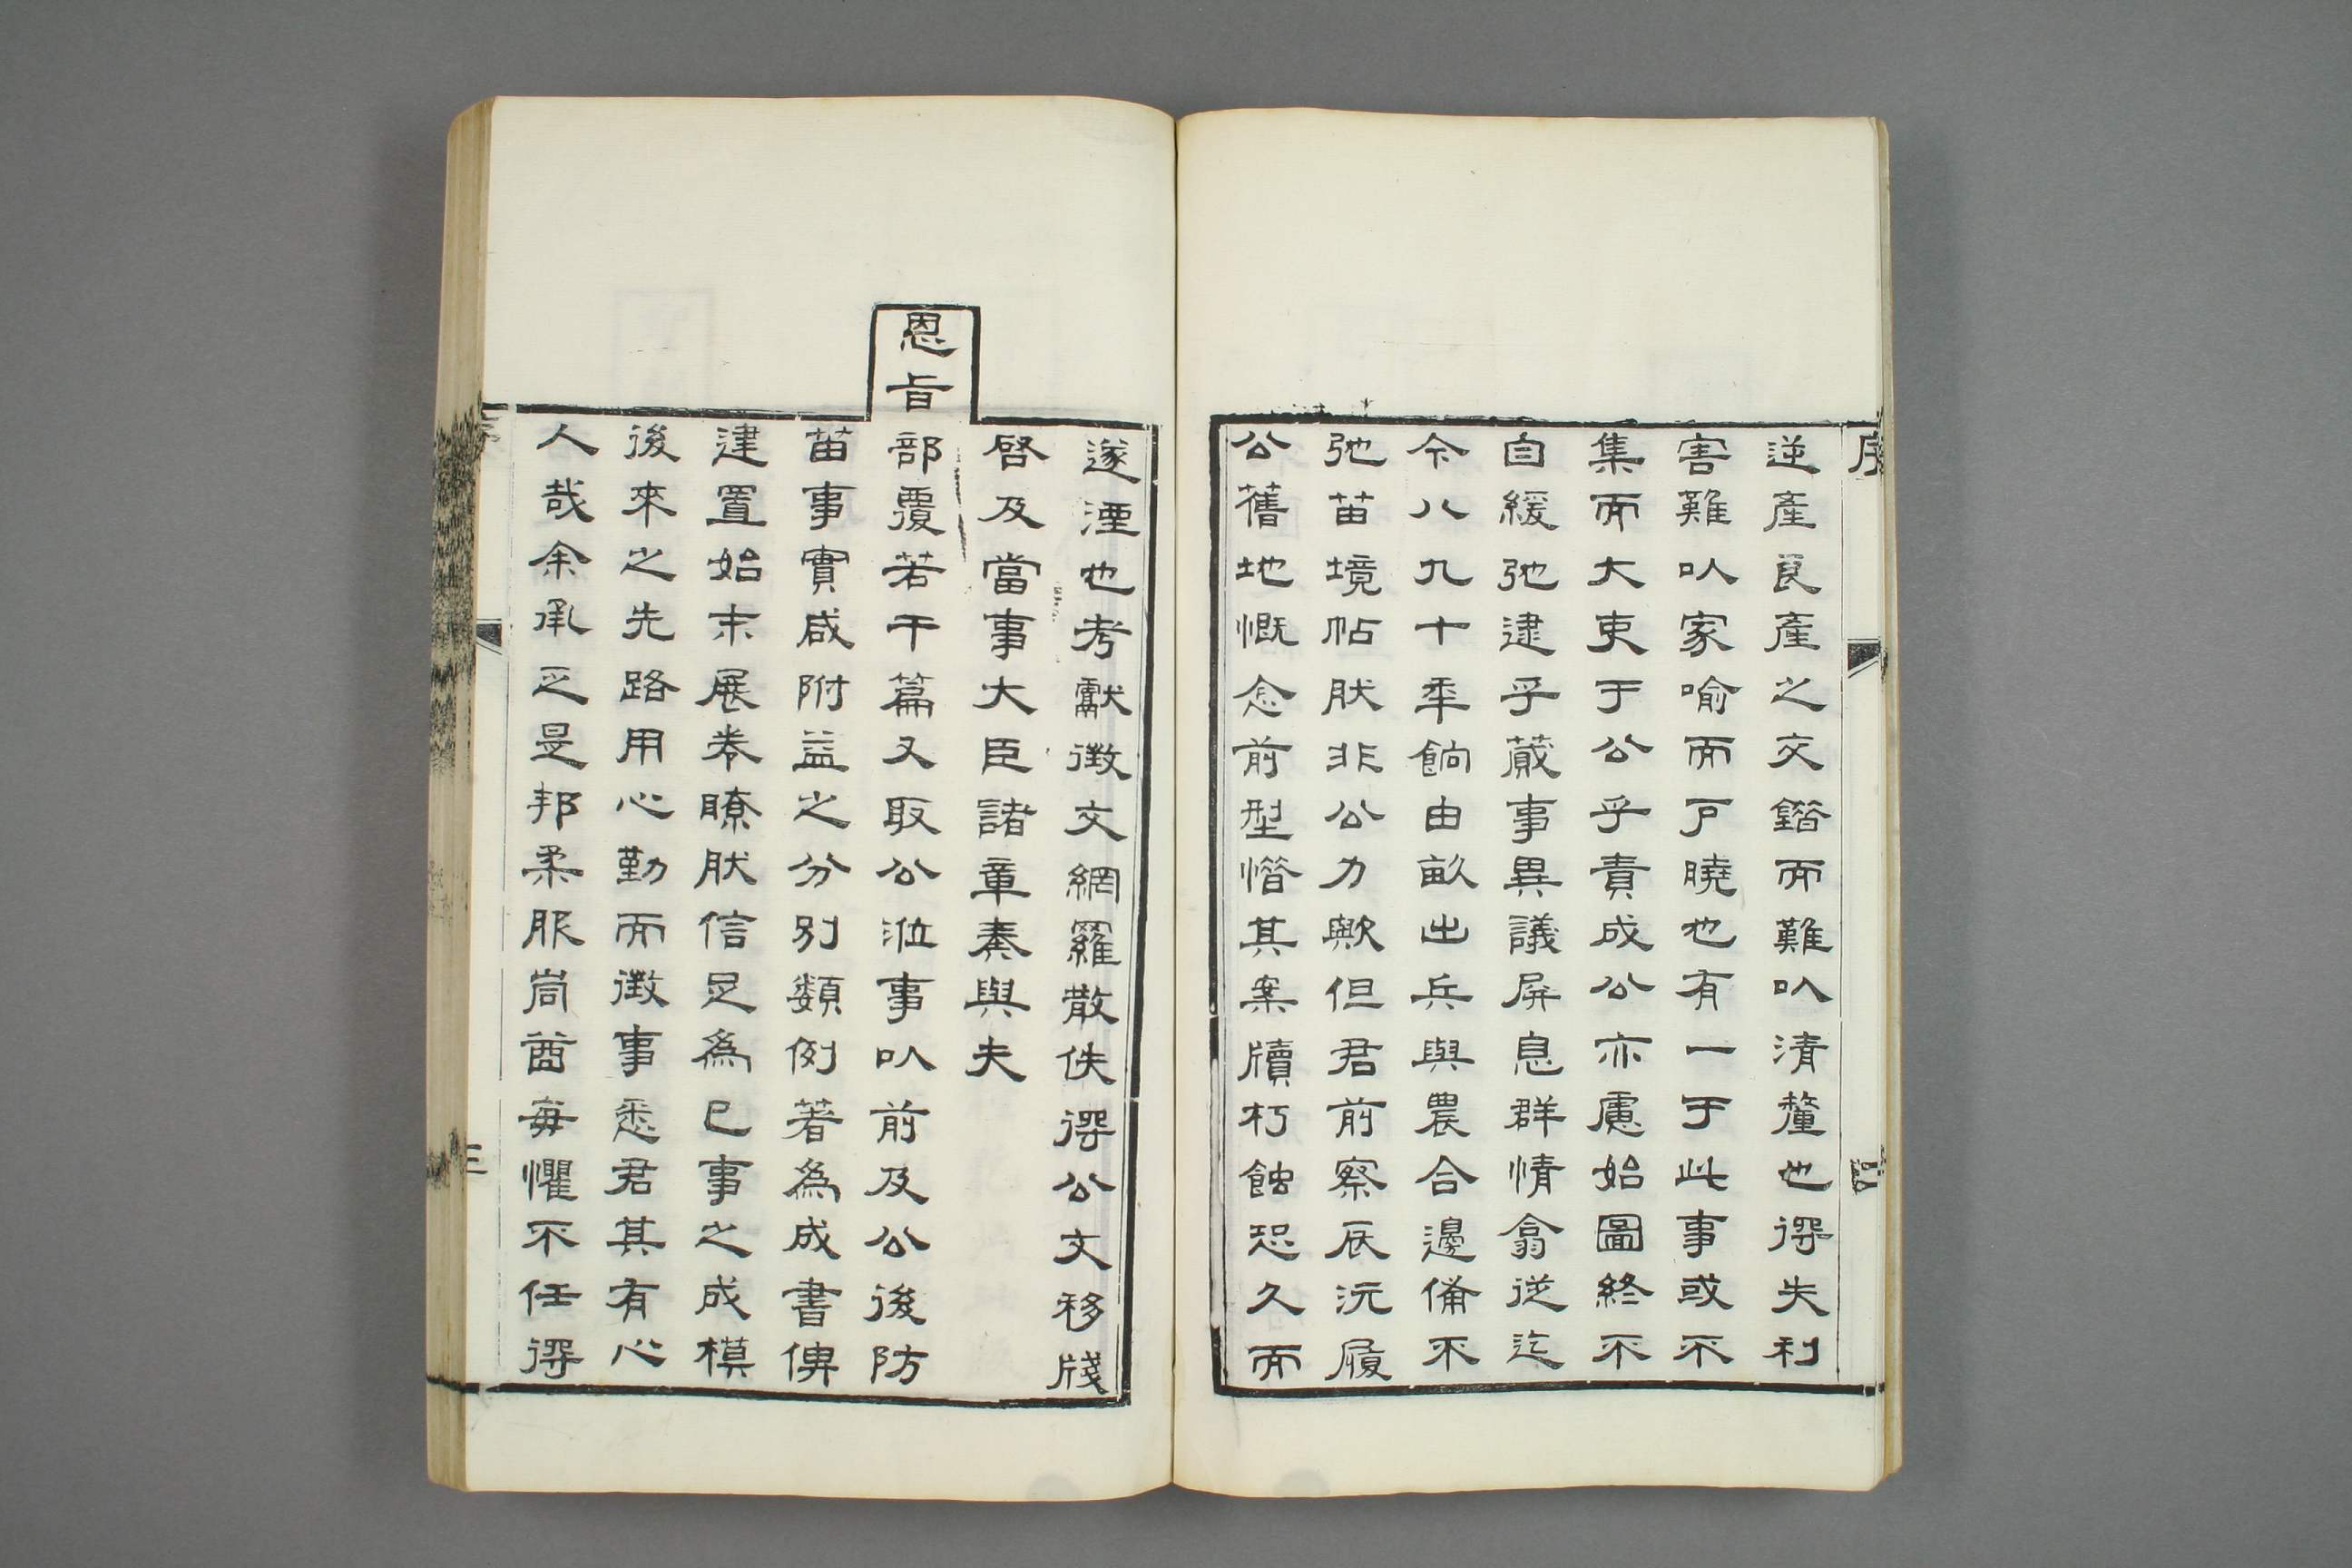 序
逆產良產之交錯而難以清釐也得失利
害難以家喻而戶曉也有一于此事或不
集而大吏于公乎責成公亦慮始圖終不
自緩弛逮乎蕆事異議屏息群情翕從迄
今八九十年餉由畝出兵與農合邊備不
弛苗境帖肰非公力歟但君前察辰沅履
公舊地慨念前型惜其案牘朽蝕恐久而
四
遂湮也考獻徵文網羅散佚得公文移牋
啓及當事大臣諸章奏與夫
恩旨部覆若干篇又取公涖事以前及公後防
苗事實咸附益之分別類例著為成書俾
建置始末展卷瞭肰信足為已事之成模
後來之先路用心勤而徵事悉君其有心
人哉余承乏是邦柔服峝酋每懼不任得
三